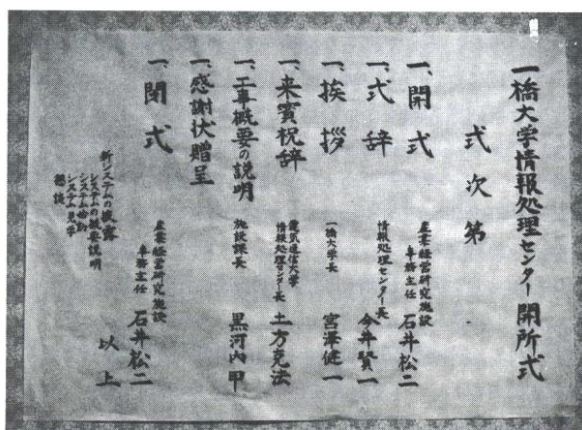 一橋大学情報処理センター開所式
式次第
一、開式
産業経営研究施設
事務主任 石井松二
一、式辞
情報処理センター長 今井賢一
一、挨拶
一橋大学長 宮澤健一
一、来賓祝辞
電気通信大学
情報処理センター長 土方克法
一、工事概要の説明
施設課長 黒河内甲
一、感謝状贈呈
一、閉式
産業経営研究施設
事務主任 石井松二
以上
新システムの披露
システムの概要説明
システム始動
システム見学
懇談